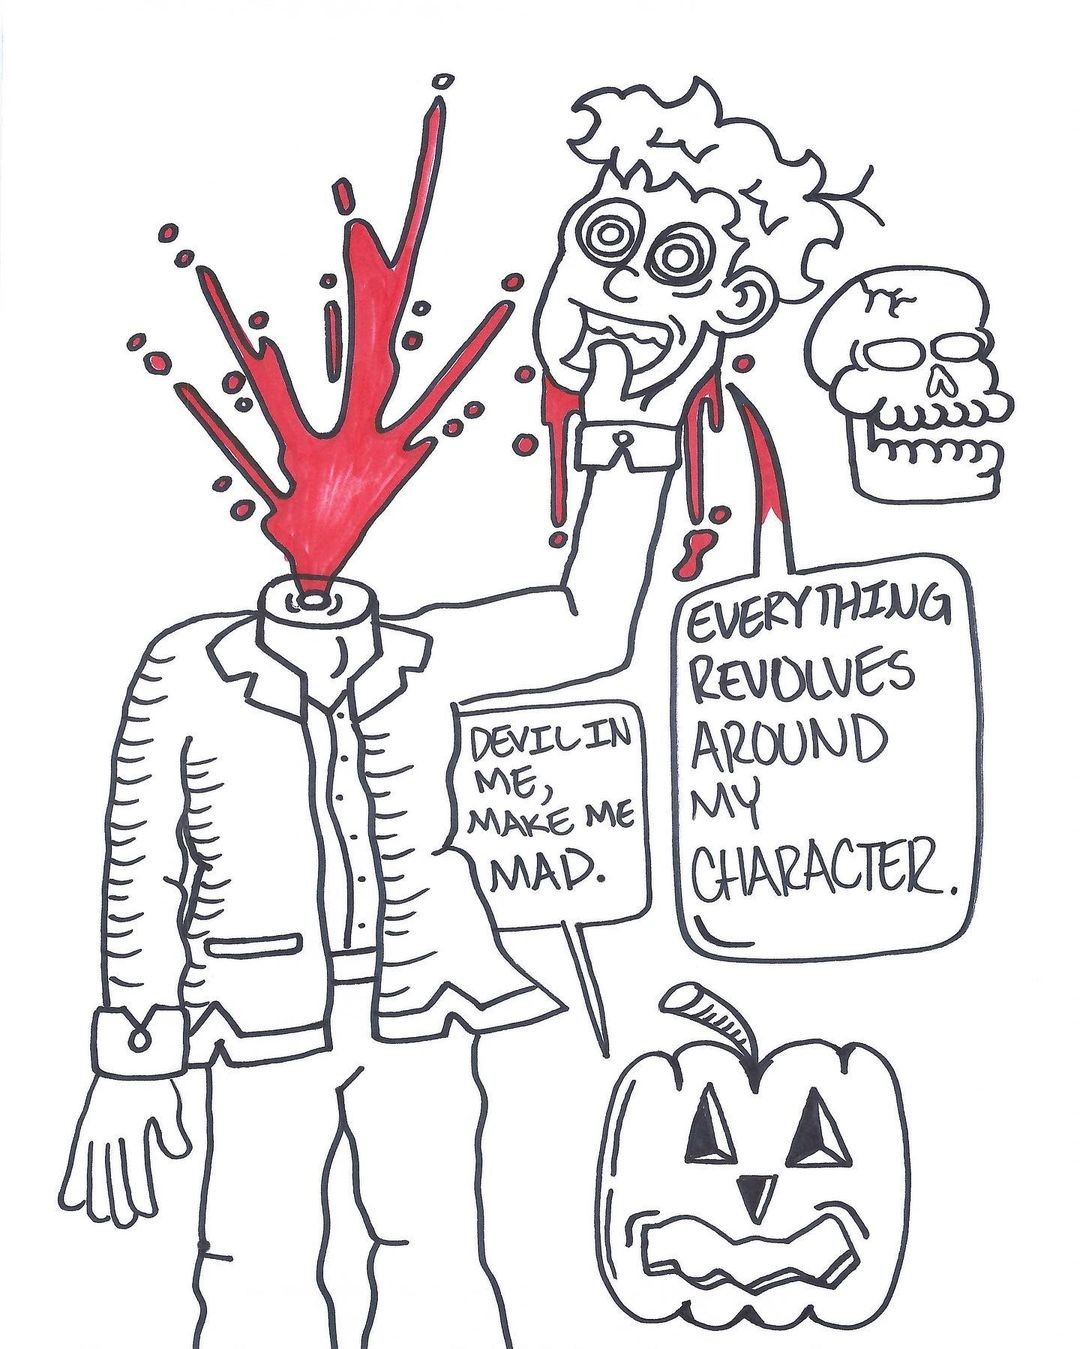 EVERYTHING
REVOLVES
AROUND
MY
CHARACTER.
DEVIL IN
ME,
MAKE ME
MAD.